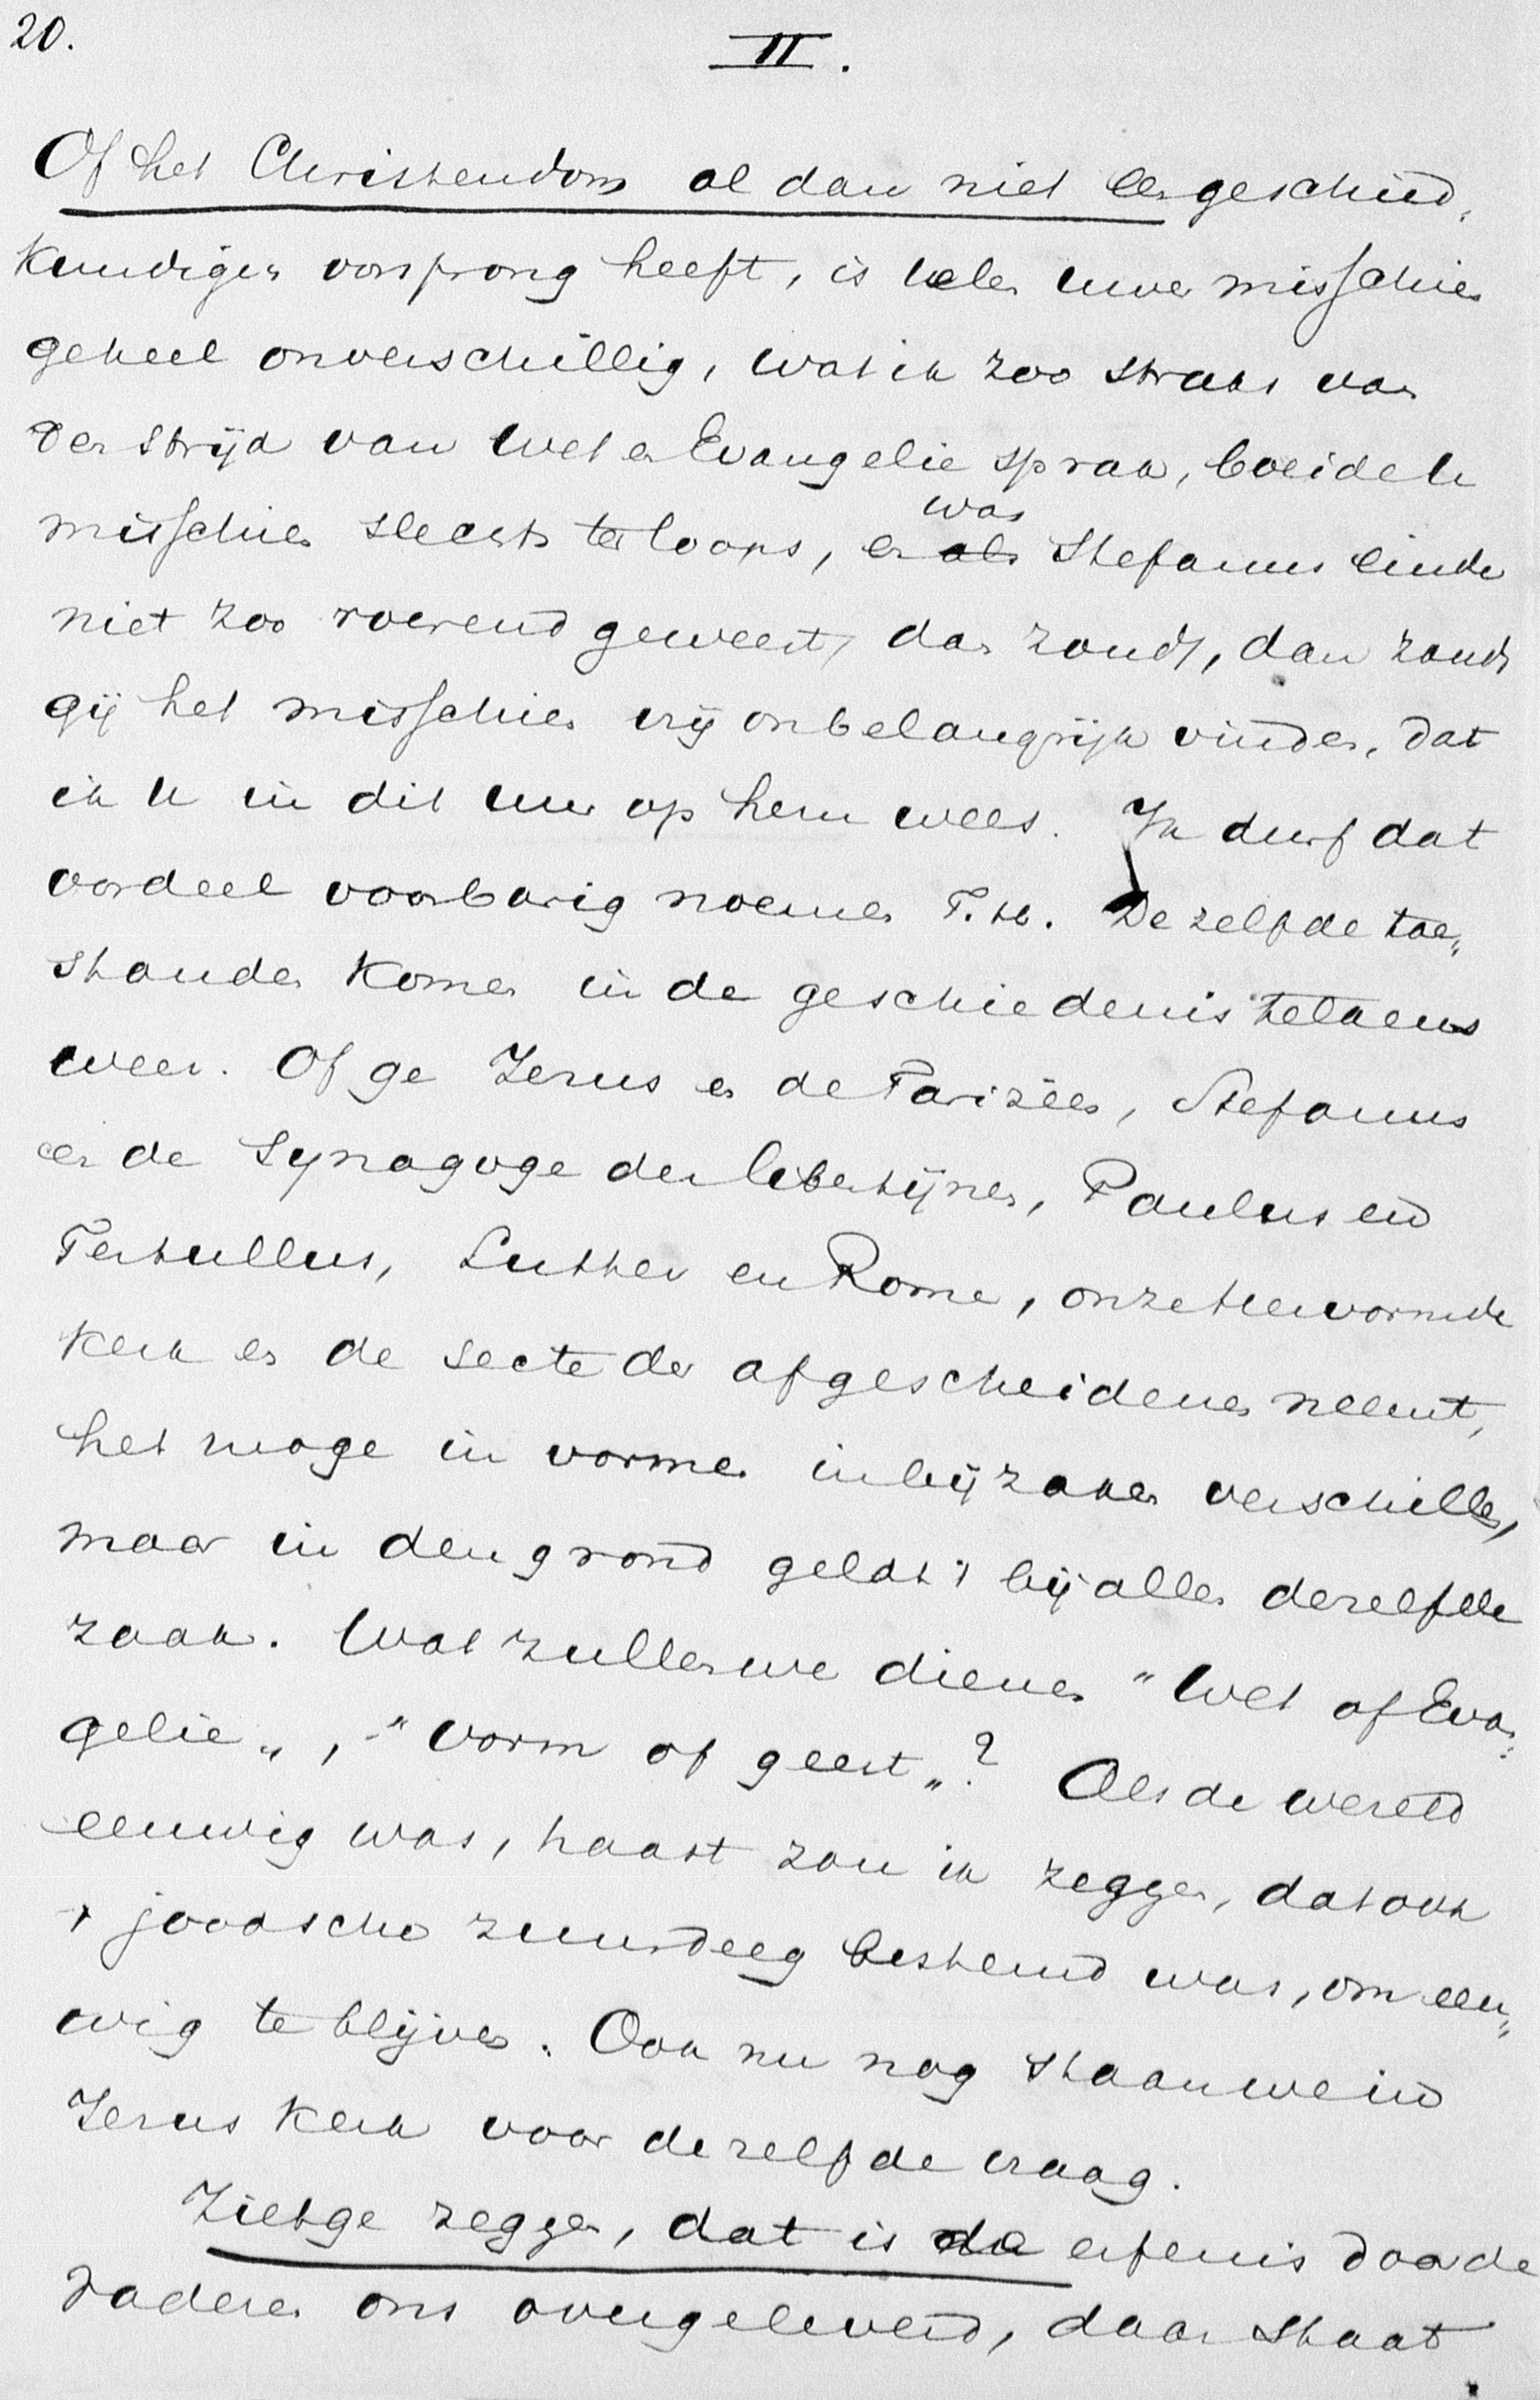 20.
II.
Of het Christendom al dan niet een geschied„
kundigen oorsprong heeft, is velen uwer misschien
geheel onverschillig, wat ik zoo straks van
den strijd van Wet en Evangelie sprak, boeide u
misschien slechts terloops, en als was Stefanus einde
niet zoo roerend geweest, dan zoudt, dan zoudt
gij het misschien vrij onbelangrijk vinden, dat
ik u in dit uur op hem wees. Ik durf dat
oordeel voorbarig noemen T.H. Dezelfde toe„
standen komen in de geschiedenis telkens
weer. Of ge Jezus en de Farizëen, Stefanus
en de Synagoge der libertijnen, Paulus en
Tertullus, Luther en Rome, onze Hervormde
Kerk en de secte der afgescheidenen neemt,
het moge in vormen in bijzaken verschillen,
maar in den grond geldt 't bij allen dezelfde
zaak. Wat zullen we dienen "Wet of Evan„
gelie„, "Vorm of geest„? Als de wereld
eeuwig was, haast zou ik zeggen, dat ook
't joodsche zuurdeeg bestemd was, om eeu„
wig te blijven. Ook nu nog staan we in
Jezus kerk voor dezelfde vraag.
Ziet ge zeggen, dat is de erfenis door de
vaderen ons overgeleverd, daar staat